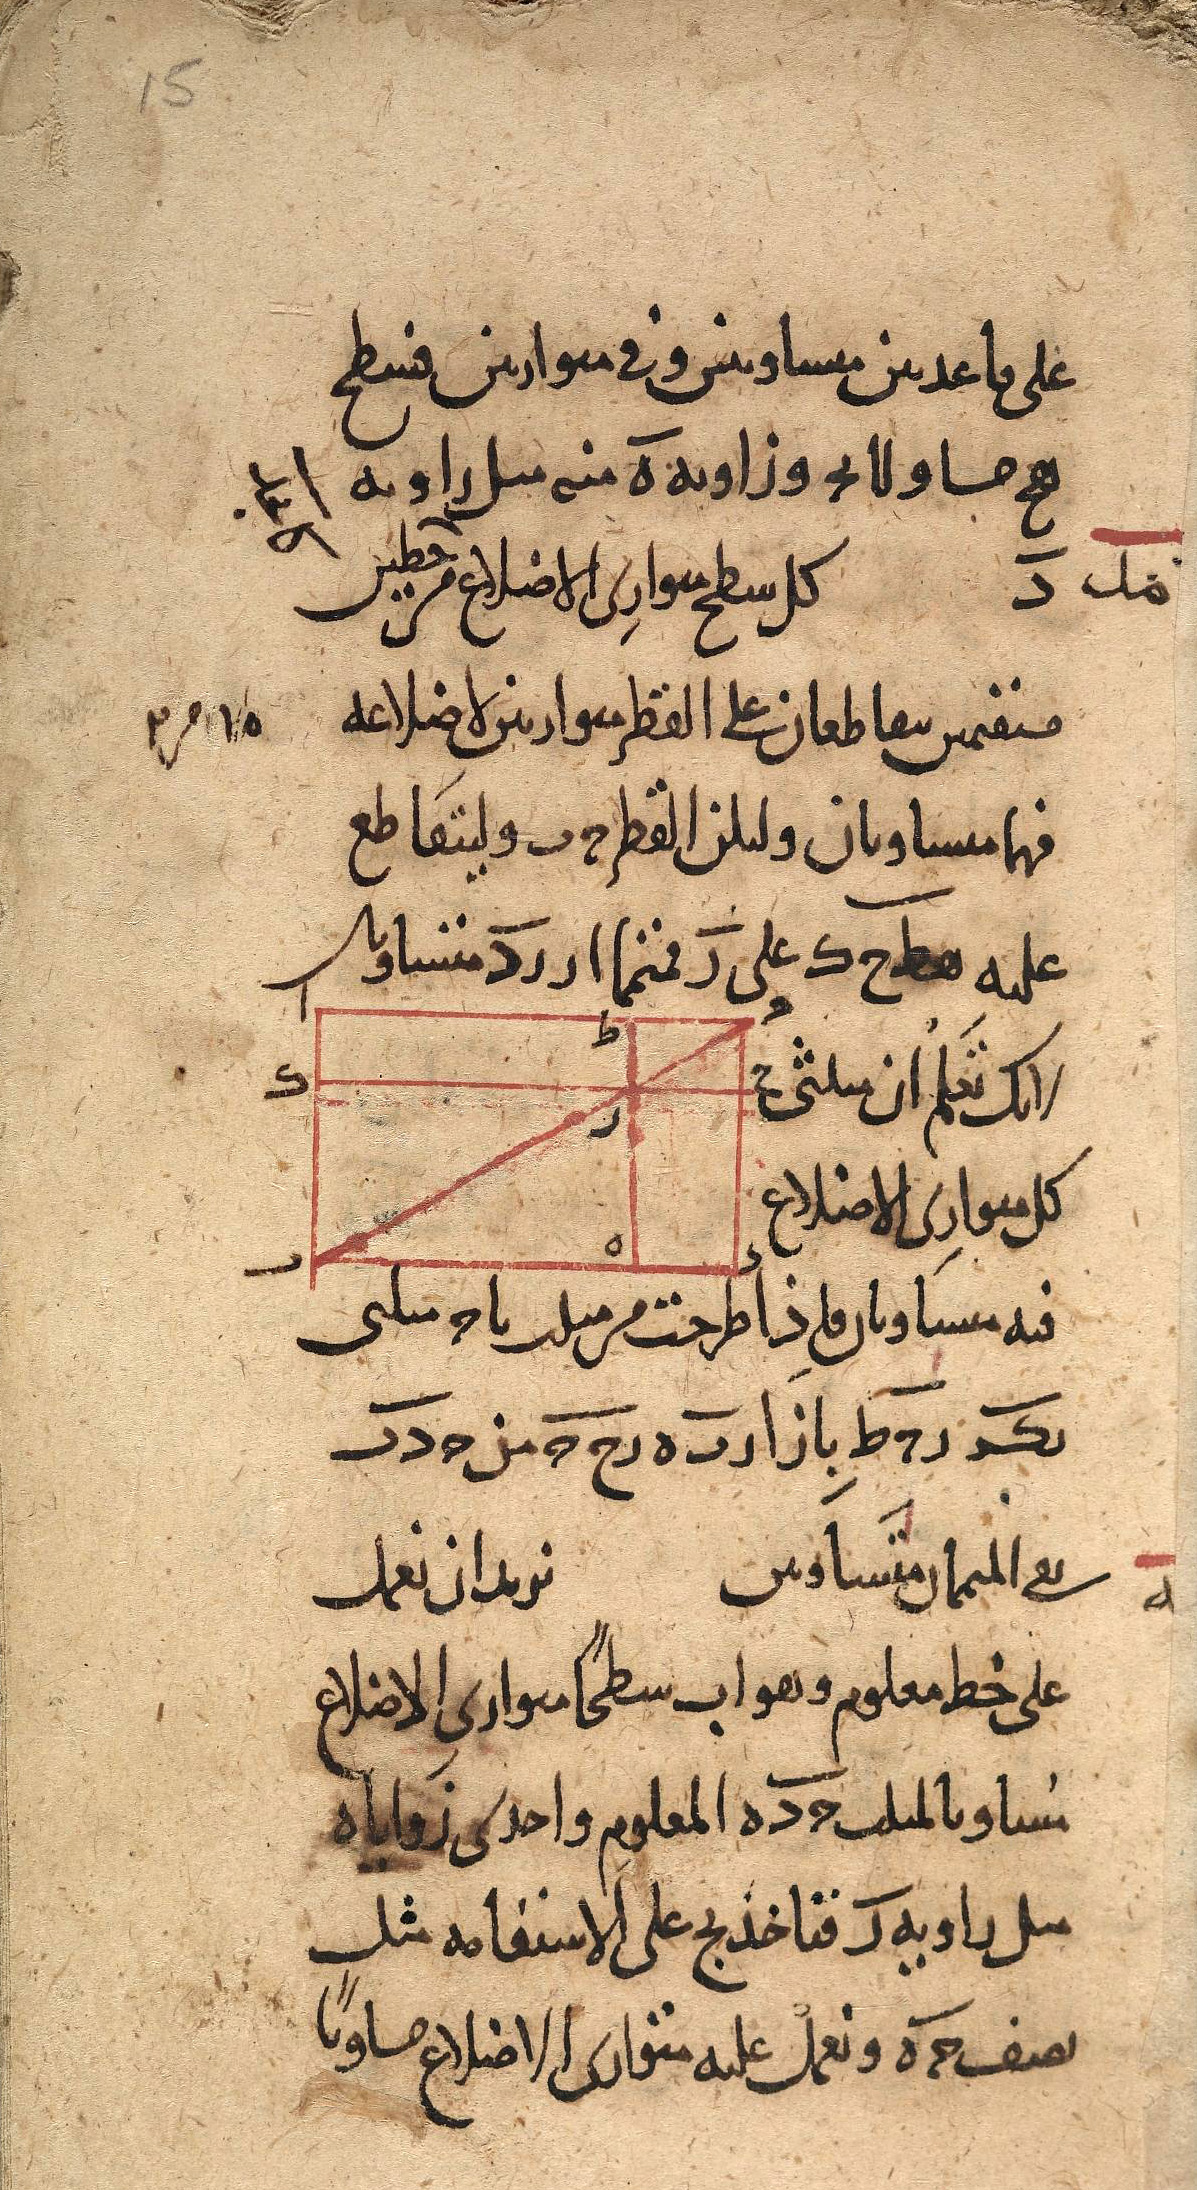 15
على قاعدتين متساويتين وفي متوازيين فسطح
هح مساو لاٮح وزاويه ه منه مثل زاويه
مل د كل سطح متوازي الاضلاع خطين
مستقيمين يتقاطعان على القطر متوازيين لاضلاعه
فهما متساويان وليكن القطر حب وليتقاطع
عليه هط حك على ز فمتمما از زد متساويان
لانك تعلم ان مثلثي
كل متوازي الاضلاع
ا
و
ط
ك
ح
ز
ه
د
ب
فيه متساويان فإذا طرحت من مثلث باح مثلثي
بكز زحط بازا زب ه زح ح من ح د ب
بقي المتممان متساويين نريد ان نعمل
ه
على خط معلوم وهو اب سطحًا متوازي الاضلاع
مساويا لمثلث حده المعلوم واحدى زواياه
مثل زاويه ز فناخذ بح على الاستقامه مثل
نصف حه ونعمل عليه متوازى الاضلاع مساويًا